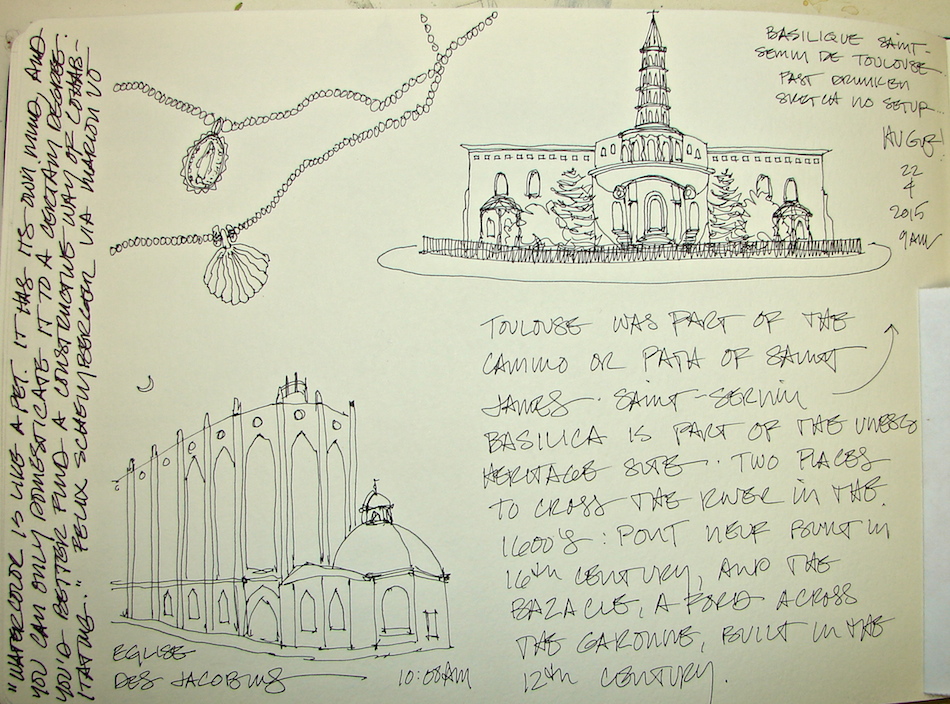 "WATERCOLOR IS LIKE A PET. IT HAS ITS OWN MIND, AND
YOU CAN ONLY DOMESTICATE IT TO A CERTAIN DEGREE.
YOU'D BETTER FIND A CONSTRUCTIVE WAY OF COHAB-
ITATING." FELIX SCHEINBERGER VIA MARION VO
BASILIQUE SAINT-
SERNIN DE TOULOUSE
FAST DRUNKEN
SKETCH NO SETUP
AUGUST
22
4
2015
9AM
TOULOUSE WAS PART OF THE
CAMINO OR PATH OF SAINT
JAMES. SAINT-SERNIN
BASILICA IS PART OF THE UNESCO
HERITAGE SITE. TWO PLACES
TO CROSS THE RIVER IN THE
1600'S: PONT NEUF BUILT IN
16TH CENTURY, AND THE
BAZACLE, A FORD ACROSS
THE GARONNE, BUILT IN THE
12TH CENTURY.
EGLISE
DES JACOBINS
10:08AM